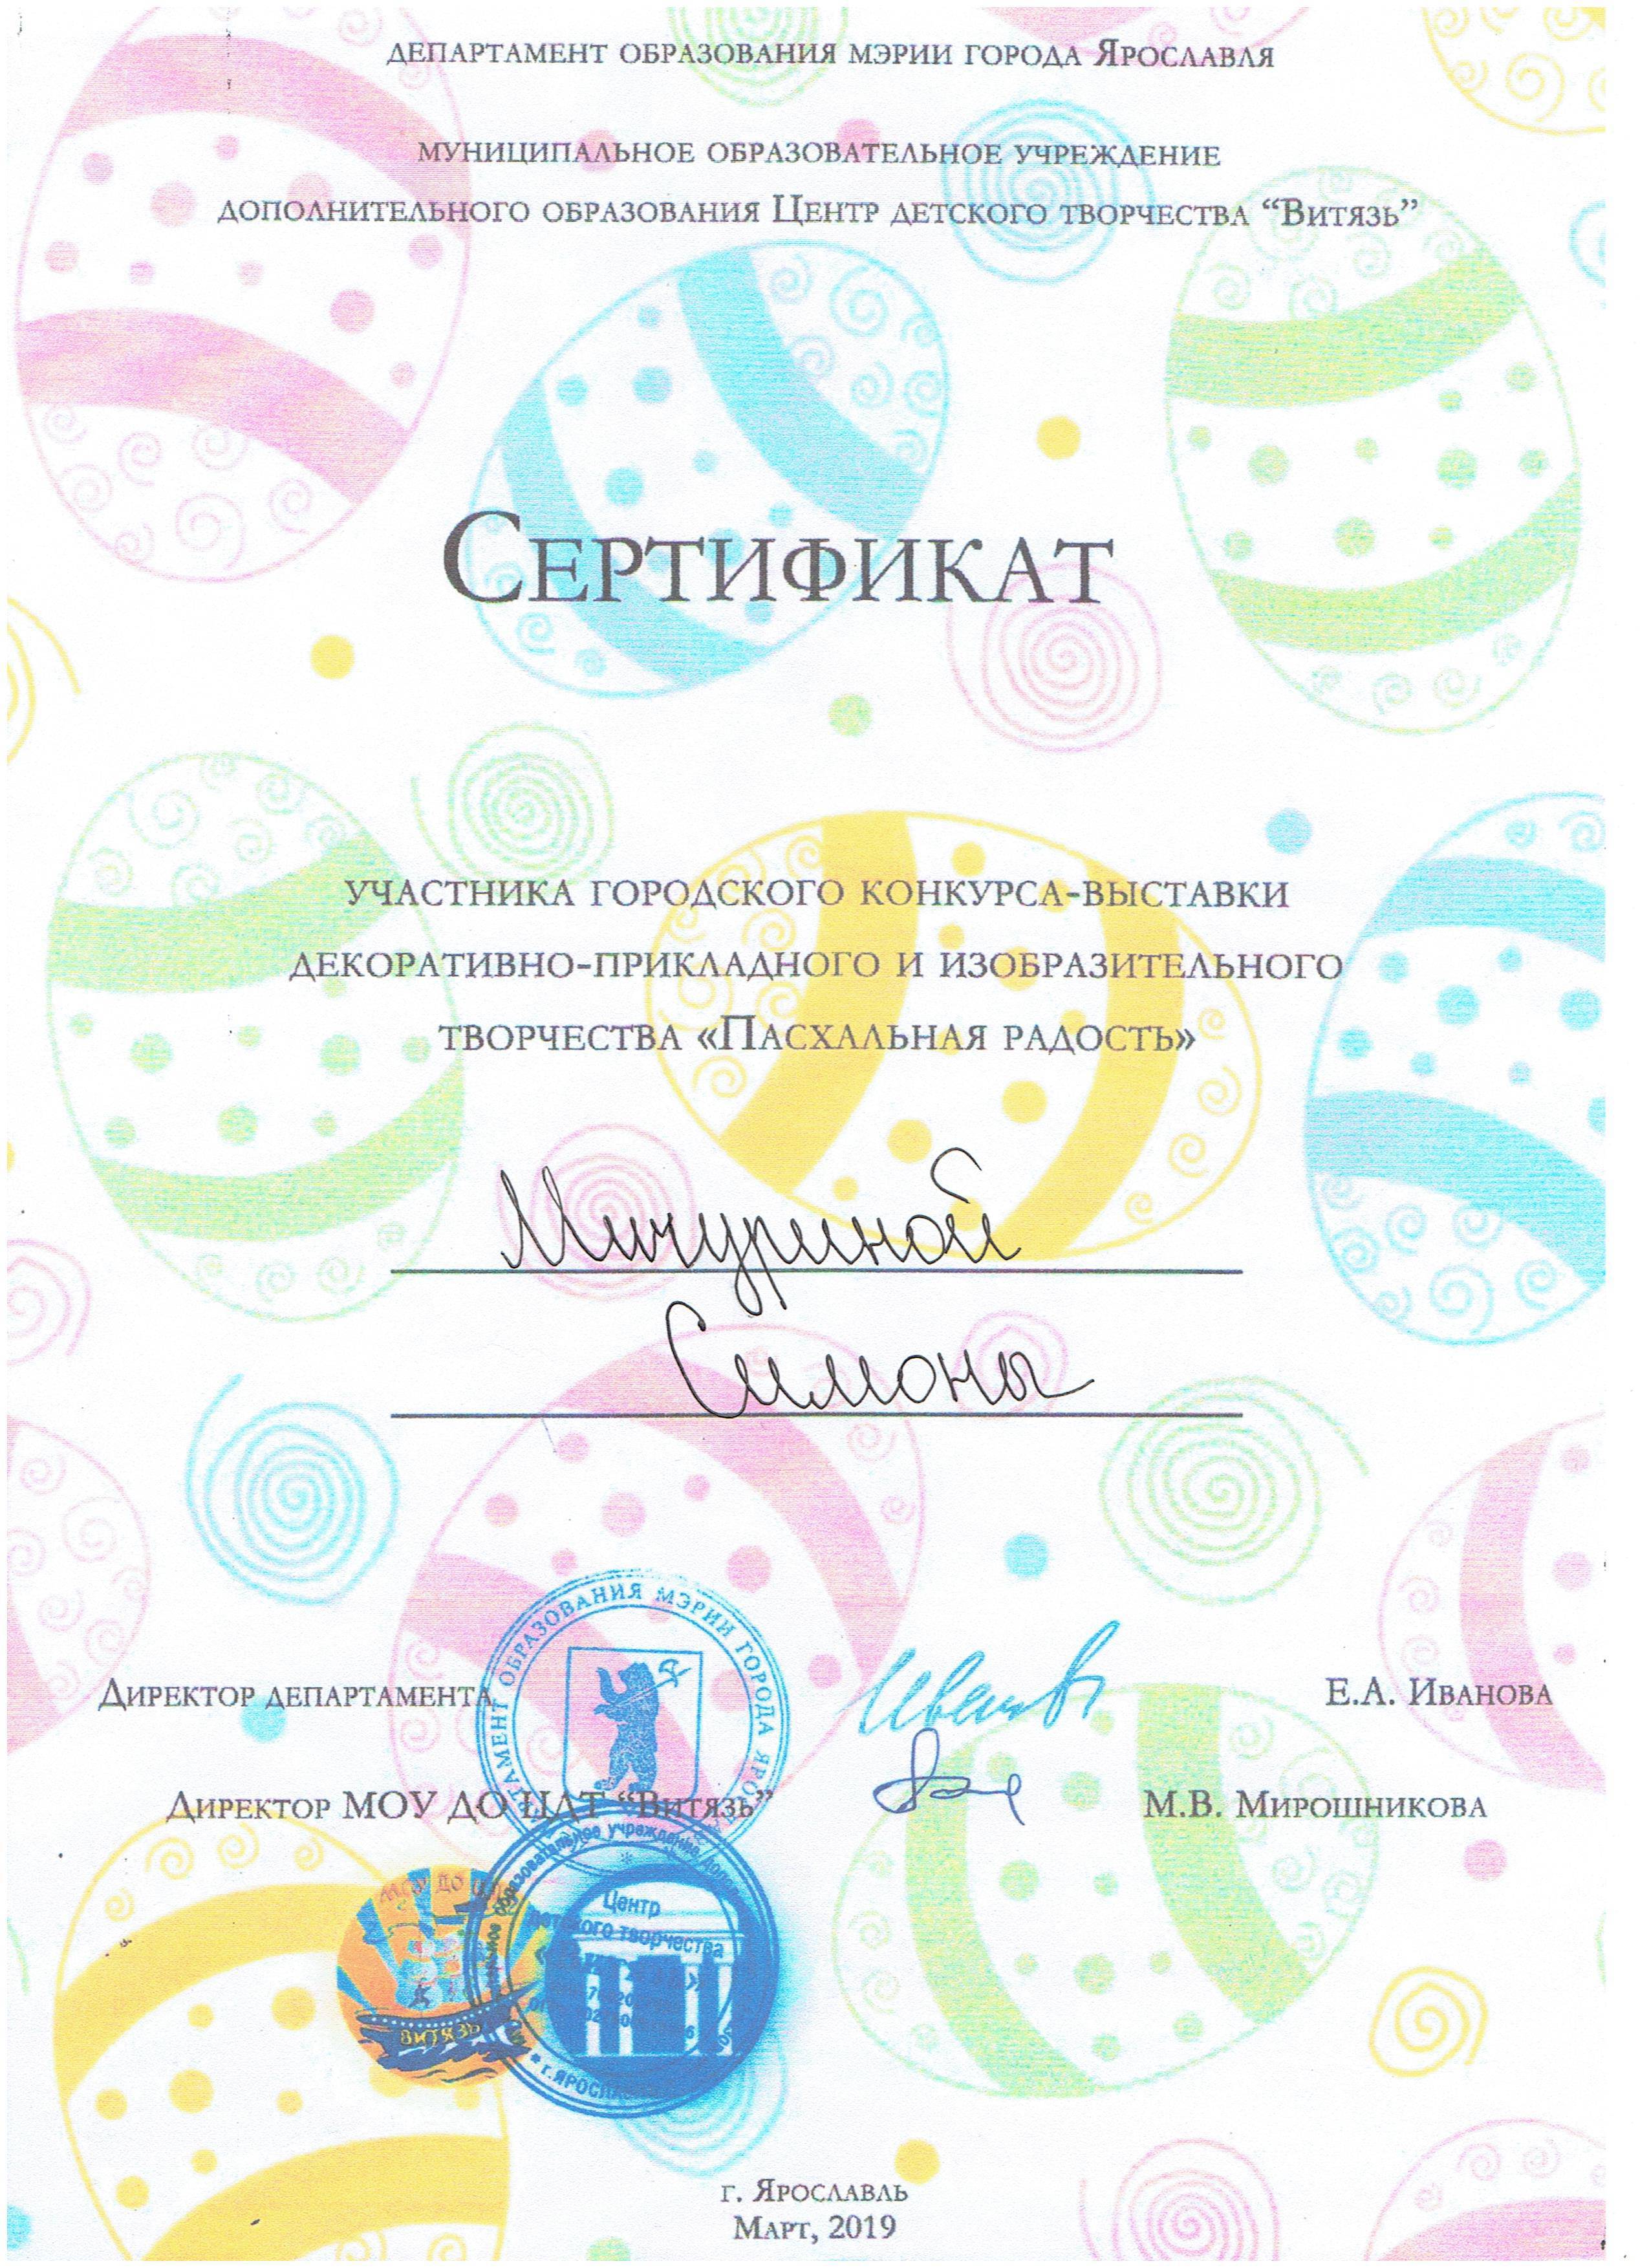 департамент образования мэрии города Ярославля
муниципальное образовательное учреждение
дополнительного образования Центр детского творчества “Витязь”
Сертификат
участника городского конкурса-выставки
декоративно-прикладного и изобразительного
творчества «Пасхальная радость»
Мичуриной
Симоны
Директор департамента
Е.А. Иванова
Директор МОУ ДО ЦДТ “Витязь”
М.В. Мирошникова
ОБРАЗОВАНИЯ МЭРИИ ГОРОДА
образовательное учреждение
Центр
творчества
МОУ ДО
ВИТЯЗЬ
г. Ярославль
Март, 2019